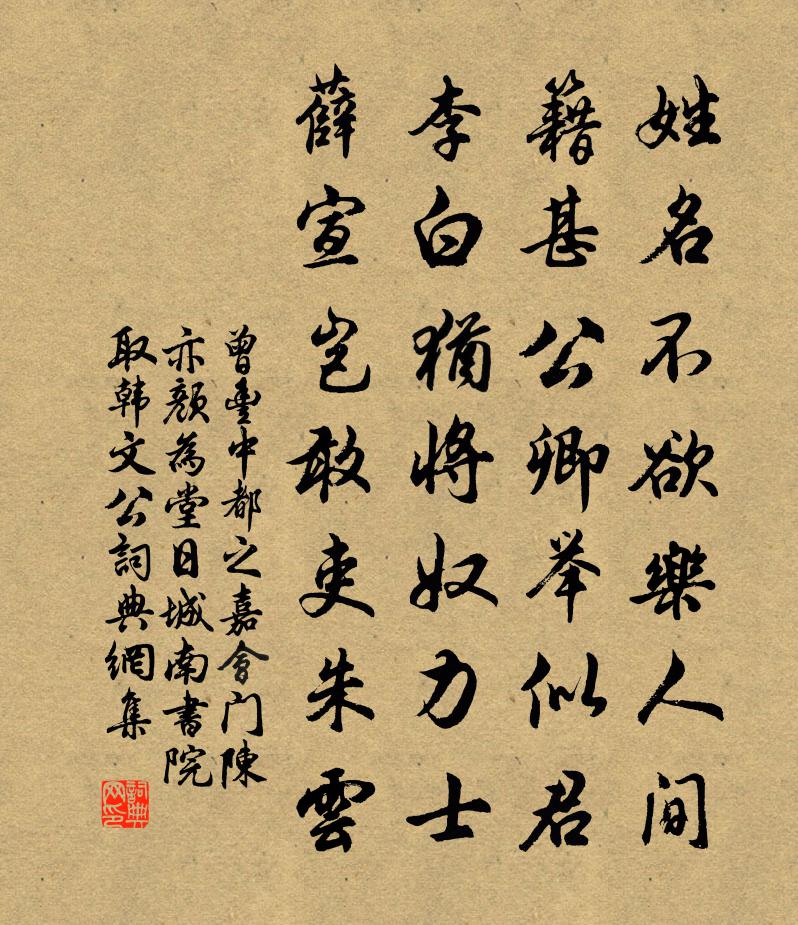 姓名不欲樂人间
籍甚公卿举似君
李白猶將奴力士
薛宣岂敢吏朱雲
曾豐中都之嘉會门陳
亦颜為堂日城南書院
取韩文公詞典網集
詞典网印